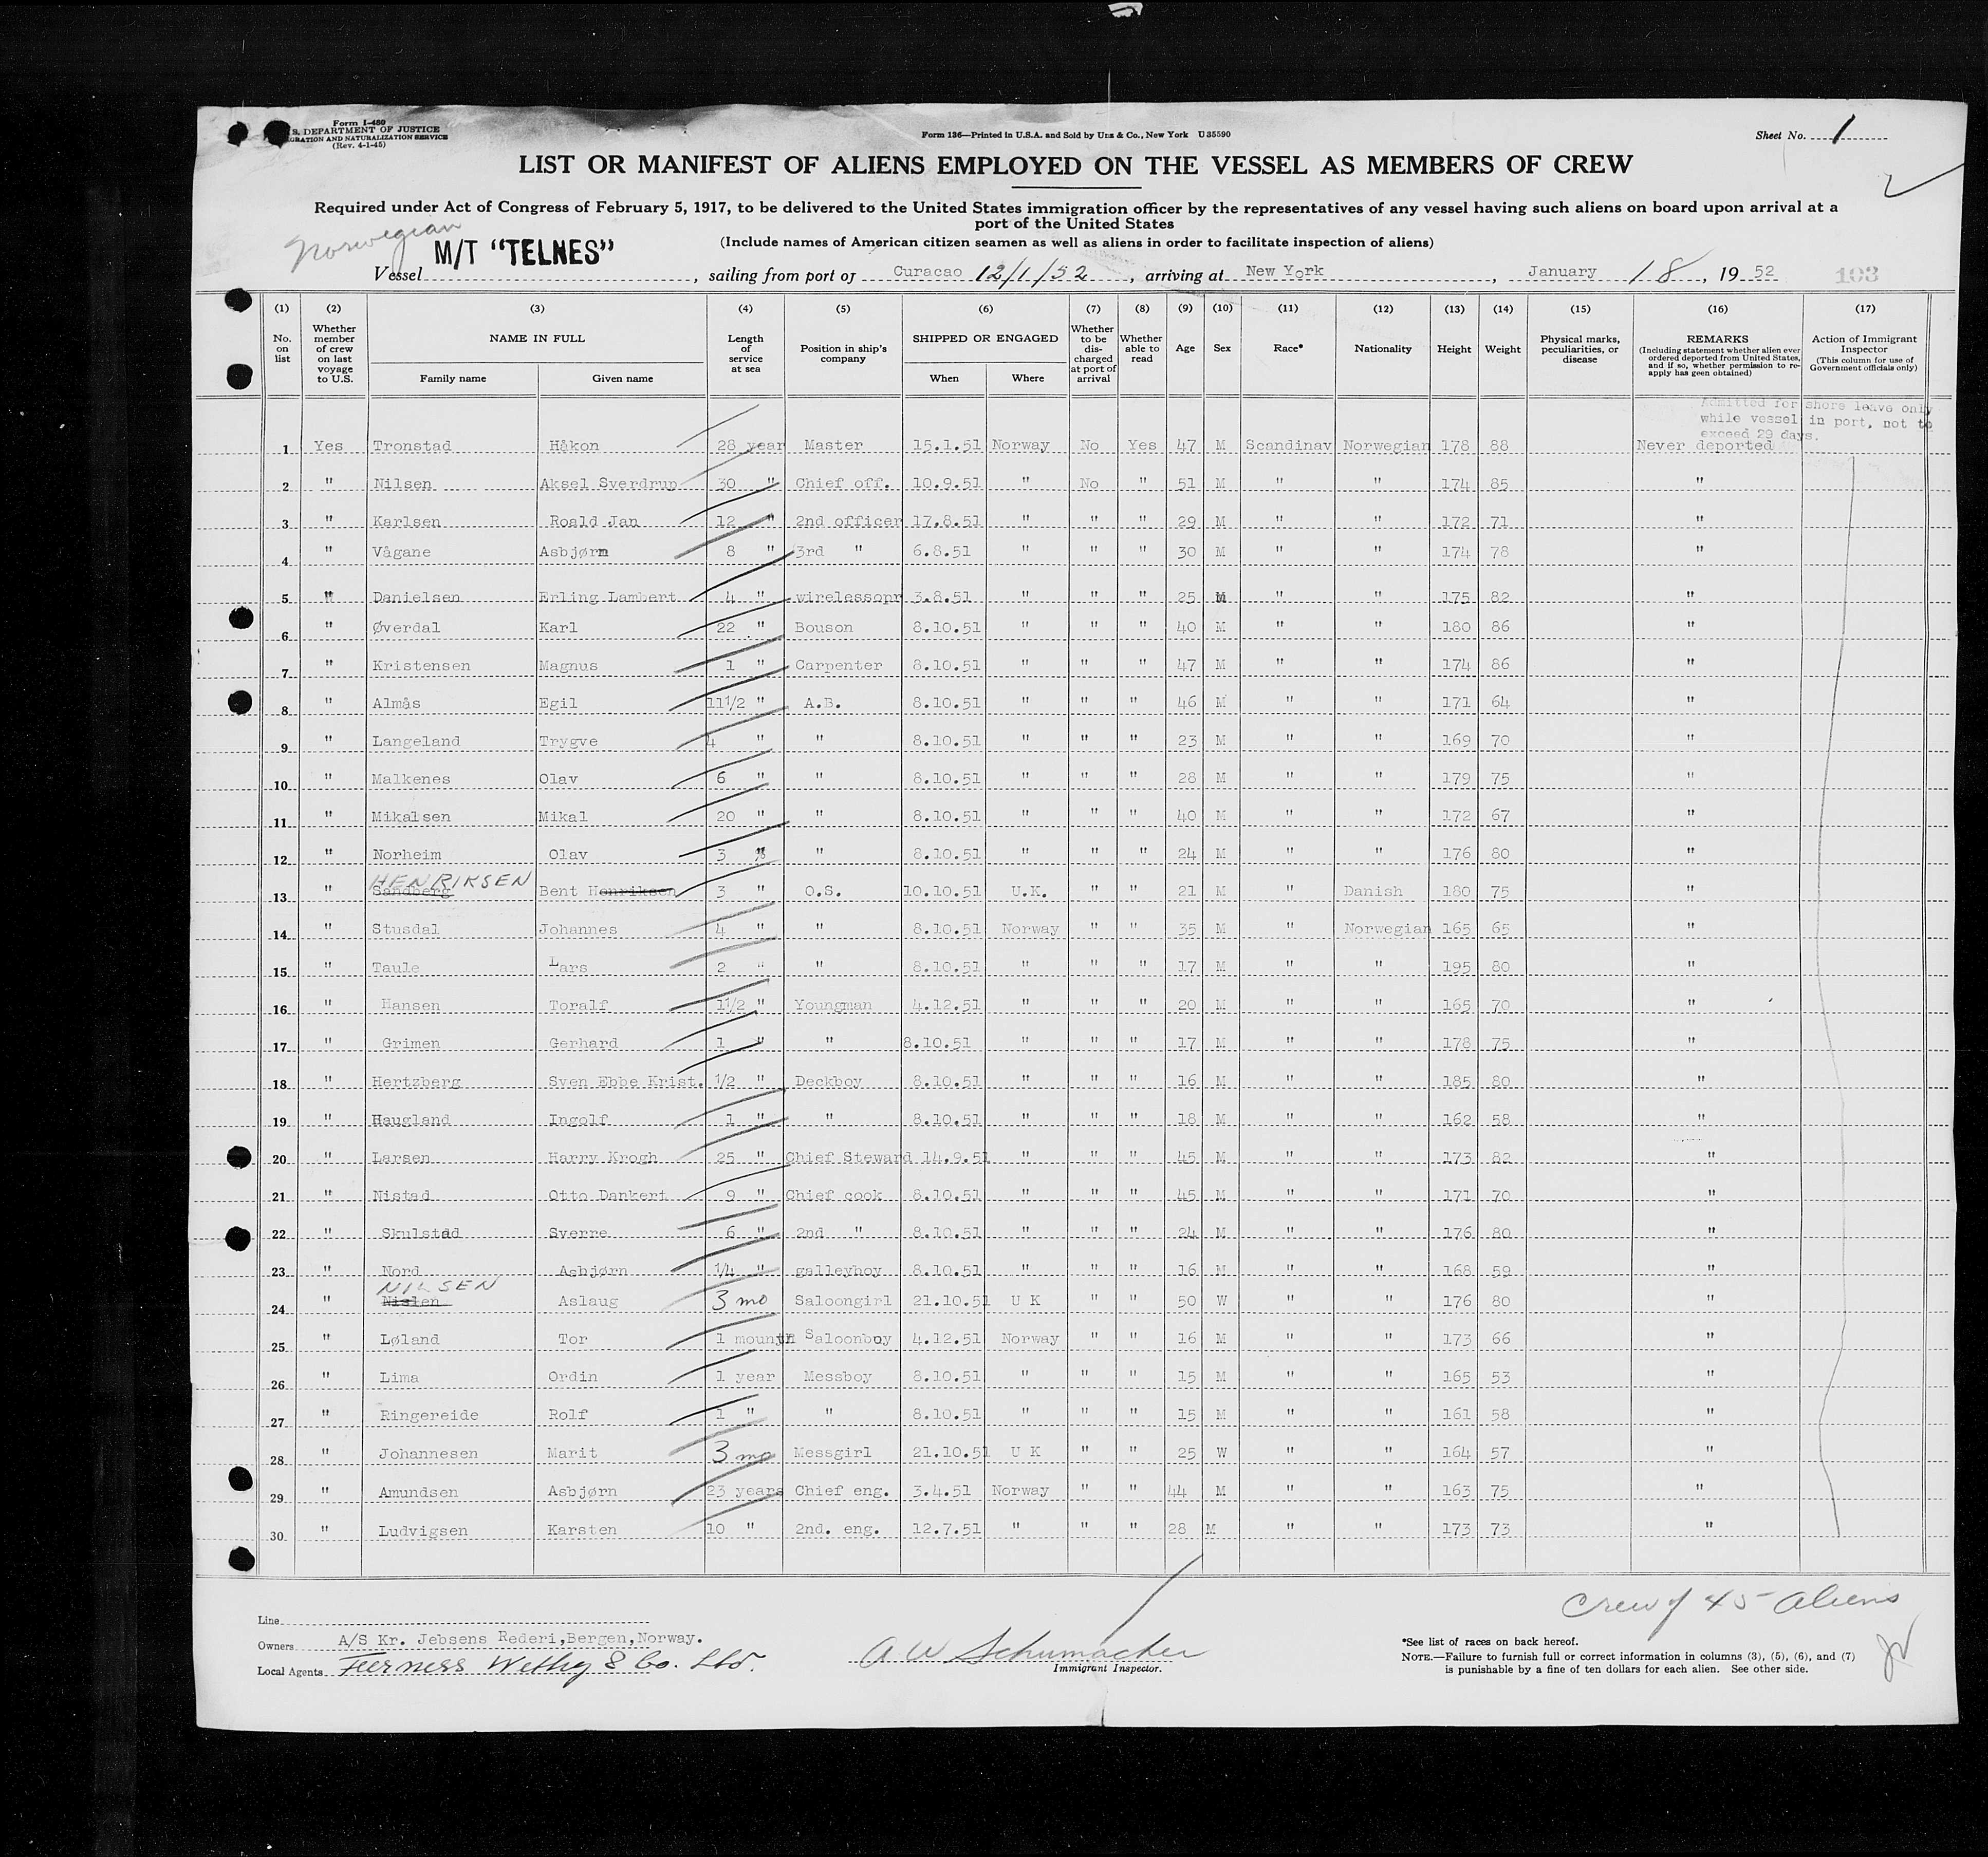 Form I-480
S. DEPARTMENT OF JUSTICE
GRATION AND NATURALIZATION SERVICE
(Rev. 4-1-45)
Form 136—Printed in U.S.A. and Sold by Unz & Co., New York U 35590
Sheet No. 1
LIST OR MANIFEST OF ALIENS EMPLOYED ON THE VESSEL AS MEMBERS OF CREW
Required under Act of Congress of February 5, 1917, to be delivered to the United States immigration officer by the representatives of any vessel having such aliens on board upon arrival at a
port of the United States
(Include names of American citizen seamen as well as aliens in order to facilitate inspection of aliens)
Norwegian
Vessel M/T "TELNES", sailing from port of Curacao 12/1/52, arriving at New York, January 18, 1952 103
(1) (2) (3) (4) (5) (6) (7) (8) (9) (10) (11) (12) (13) (14) (15) (16) (17)
No. on list
Whether member of crew on last voyage to U.S.
NAME IN FULL
Family name
Given name
Length of service at sea
Position in ship's company
SHIPPED OR ENGAGED
When
Where
Whether to be dis-charged at port of arrival
Whether able to read
Age
Sex
Race*
Nationality
Height
Weight
Physical marks, peculiarities, or disease
REMARKS
(Including statement whether alien ever ordered deported from United States, and if so, whether permission to re-apply has geen obtained)
Action of Immigrant Inspector
(This column for use of Government officials only)
Admitted for shore leave only
while vessel in port, not to
exceed 29 days.
1 Yes Tronstad Håkon 28 year Master 15.1.51 Norway No Yes 47 M Scandinav Norwegian 178 88 Never deported
2 " Nilsen Aksel Sverdrup 30 " Chief off. 10.9.51 " No " 51 M " " 174 85 "
3 " Karlsen Roald Jan 12 " 2nd officer 17.8.51 " " " 29 M " " 172 71 "
4 " Vågane Asbjørn 8 " 3rd " 6.8.51 " " " 30 M " " 174 78 "
5 " Danielsen Erling Lambert 4 " wirelessopr 3.8.51 " " " 25 M " " 175 82 "
6 " Øverdal Karl 22 " Bouson 8.10.51 " " " 40 M " " 180 86 "
7 " Kristensen Magnus 1 " Carpenter 8.10.51 " " " 47 M " " 174 86 "
8 " Almås Egil 11 1/2 " A.B. 8.10.51 " " " 46 M " " 171 64 "
9 " Langeland Trygve 4 " " 8.10.51 " " " 23 M " " 169 70 "
10 " Malkenes Olav 6 " " 8.10.51 " " " 28 M " " 179 75 "
11 " Mikalsen Mikal 20 " " 8.10.51 " " " 40 M " " 172 67 "
12 " Norheim Olav 3 " " 8.10.51 " " " 24 M " " 176 80 "
HENRIKSEN
13 " Sandberg Bent Henriksen 3 " O.S. 10.10.51 U.K. " " 21 M " Danish 180 75 "
14 " Stusdal Johannes 4 " " 8.10.51 Norway " " 35 M " Norwegian 165 65 "
15 " Taule Lars 2 " " 8.10.51 " " " 17 M " " 195 80 "
16 " Hansen Toralf 1 1/2 " Youngman 4.12.51 " " " 20 M " " 165 70 "
17 " Grimen Gerhard 1 " " 8.10.51 " " " 17 M " " 178 75 "
18 " Hertzberg Sven Ebbe Krist. 1/2 " Deckboy 8.10.51 " " " 16 M " " 185 80 "
19 " Haugland Ingolf 1 " " 8.10.51 " " " 18 M " " 162 58 "
20 " Larsen Harry Krogh 25 " Chief Steward 14.9.51 " " " 45 M " " 173 82 "
21 " Nistad Otto Dankert 9 " Chief cook 8.10.51 " " " 45 M " " 171 70 "
22 " Skulstad Sverre 6 " 2nd " 8.10.51 " " " 24 M " " 176 80 "
23 " Nord Asbjørn 1/4 " galleyboy 8.10.51 " " " 16 M " " 168 59 "
NILSEN
24 " Nislen Aslaug 3 mo Saloongirl 21.10.51 U K " " 50 W " " 176 80 "
25 " Løland Tor 1 mounth Saloonboy 4.12.51 Norway " " 16 M " " 173 66 "
26 " Lima Ordin 1 year Messboy 8.10.51 " " " 15 M " " 165 53 "
27 " Ringereide Rolf 1 " " 8.10.51 " " " 15 M " " 161 58 "
28 " Johannesen Marit 3 mo Messgirl 21.10.51 U K " " 25 W " " 164 57 "
29 " Amundsen Asbjørn 23 years Chief eng. 3.4.51 Norway " " 44 M " " 163 75 "
30 " Ludvigsen Karsten 10 " 2nd. eng. 12.7.51 " " " 28 M " " 173 73 "
Crew of 45 aliens
Line
Owners A/S Kr. Jebsens Rederi, Bergen, Norway.
Local Agents Furness Withy & Co. Ltd.
A W Schumacher
Immigrant Inspector.
*See list of races on back hereof.
NOTE.—Failure to furnish full or correct information in columns (3), (5), (6), and (7)
is punishable by a fine of ten dollars for each alien. See other side.